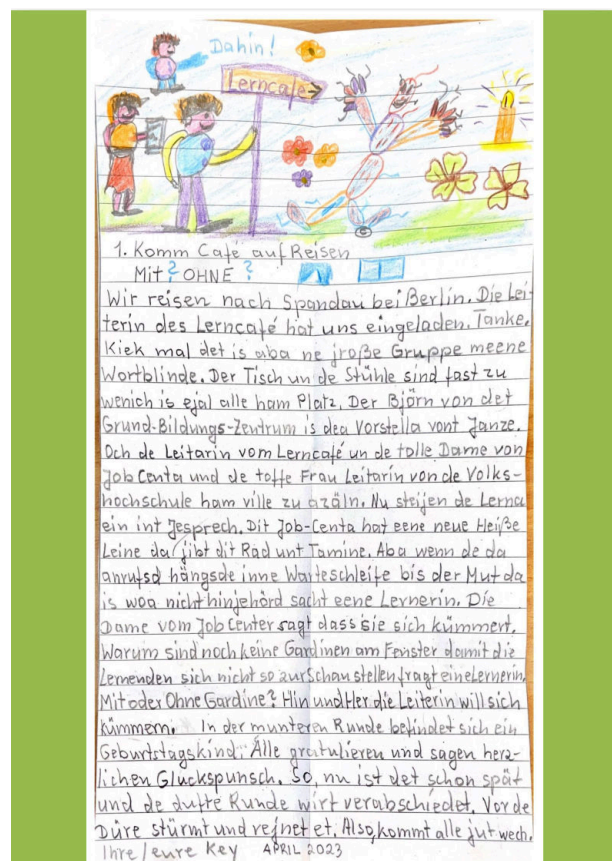 Dahin!
Lerncafe→
1. Komm Café auf Reisen
Mit? OHNE?
Wir reisen nach Spandau bei Berlin. Die Lei-
terin des Lerncafé hat uns eingeladen. Tanke.
Kiek mal det is aba ne jroße Gruppe meene
Wortblinde. Der Tisch un de Stühle sind fast zu
wenich is ejal alle ham Platz. Der Björn von det
Grund-Bildungs-Zentrum is dea Vorstella vont Janze.
Och de Leitarin vom Lerncafé un de tolle Dame von
Job Centa und de toffe Frau Leitarin von de Volks-
hochschule ham ville zu azäln. Nu steijen de Lerna
ein int Jesprech. Dit Job-Centa hat eene neue Heiße
Leine da jibt dit Rad unt Tamine. Aba wenn de da
anrufsd hängsde inne Warteschleife bis der Mut da
is woa nicht hinjehörd sacht eene Lernerin. Die
Dame vom Job Center sagt dass sie sich kümmert.
Warum sind noch keine Gardinen am Fenster damit die
Lernenden sich nicht so zur Schau stellen fragt eine Lernerin.
Mit oder Ohne Gardine? Hin und Her die Leiterin will sich
kümmern. In der munteren Runde befindet sich ein
Geburtstagskind. Alle gratulieren und sagen herz-
lichen Gluckspunsch. So, nu ist det schon spät
und de dufte Runde wirt verabschiedet. Vor de
Düre stürmt und rejnet et. Also, kommt alle jut wech.
Ihre/eure Key APRIL 2023